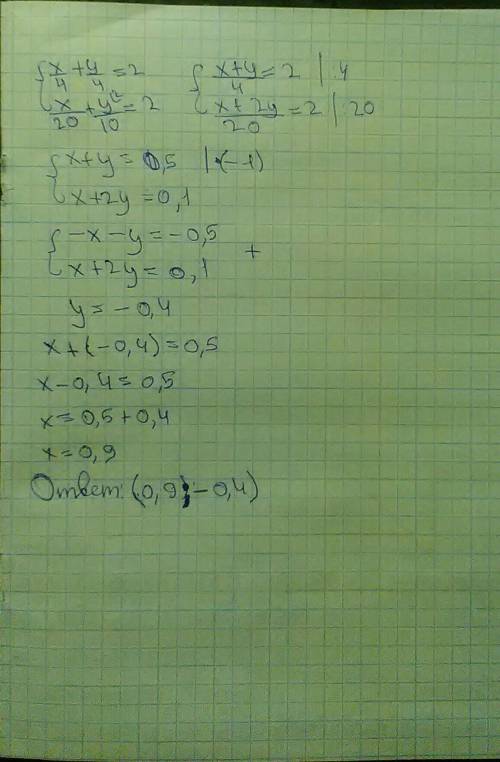 {x/4 + y/4 = 2 {(x+y)/4 = 2 | 4
{x/20 + y²/10 = 2 {(x+2y)/20 = 2 | 20
{x+y = 0,5 |·(-1)
{x+2y = 0,1
{-x-y = -0,5
{x+2y = 0,1 +
y = -0,4
x+(-0,4) = 0,5
x-0,4 = 0,5
x = 0,5+0,4
x = 0,9
Ответ: (0,9; -0,4)